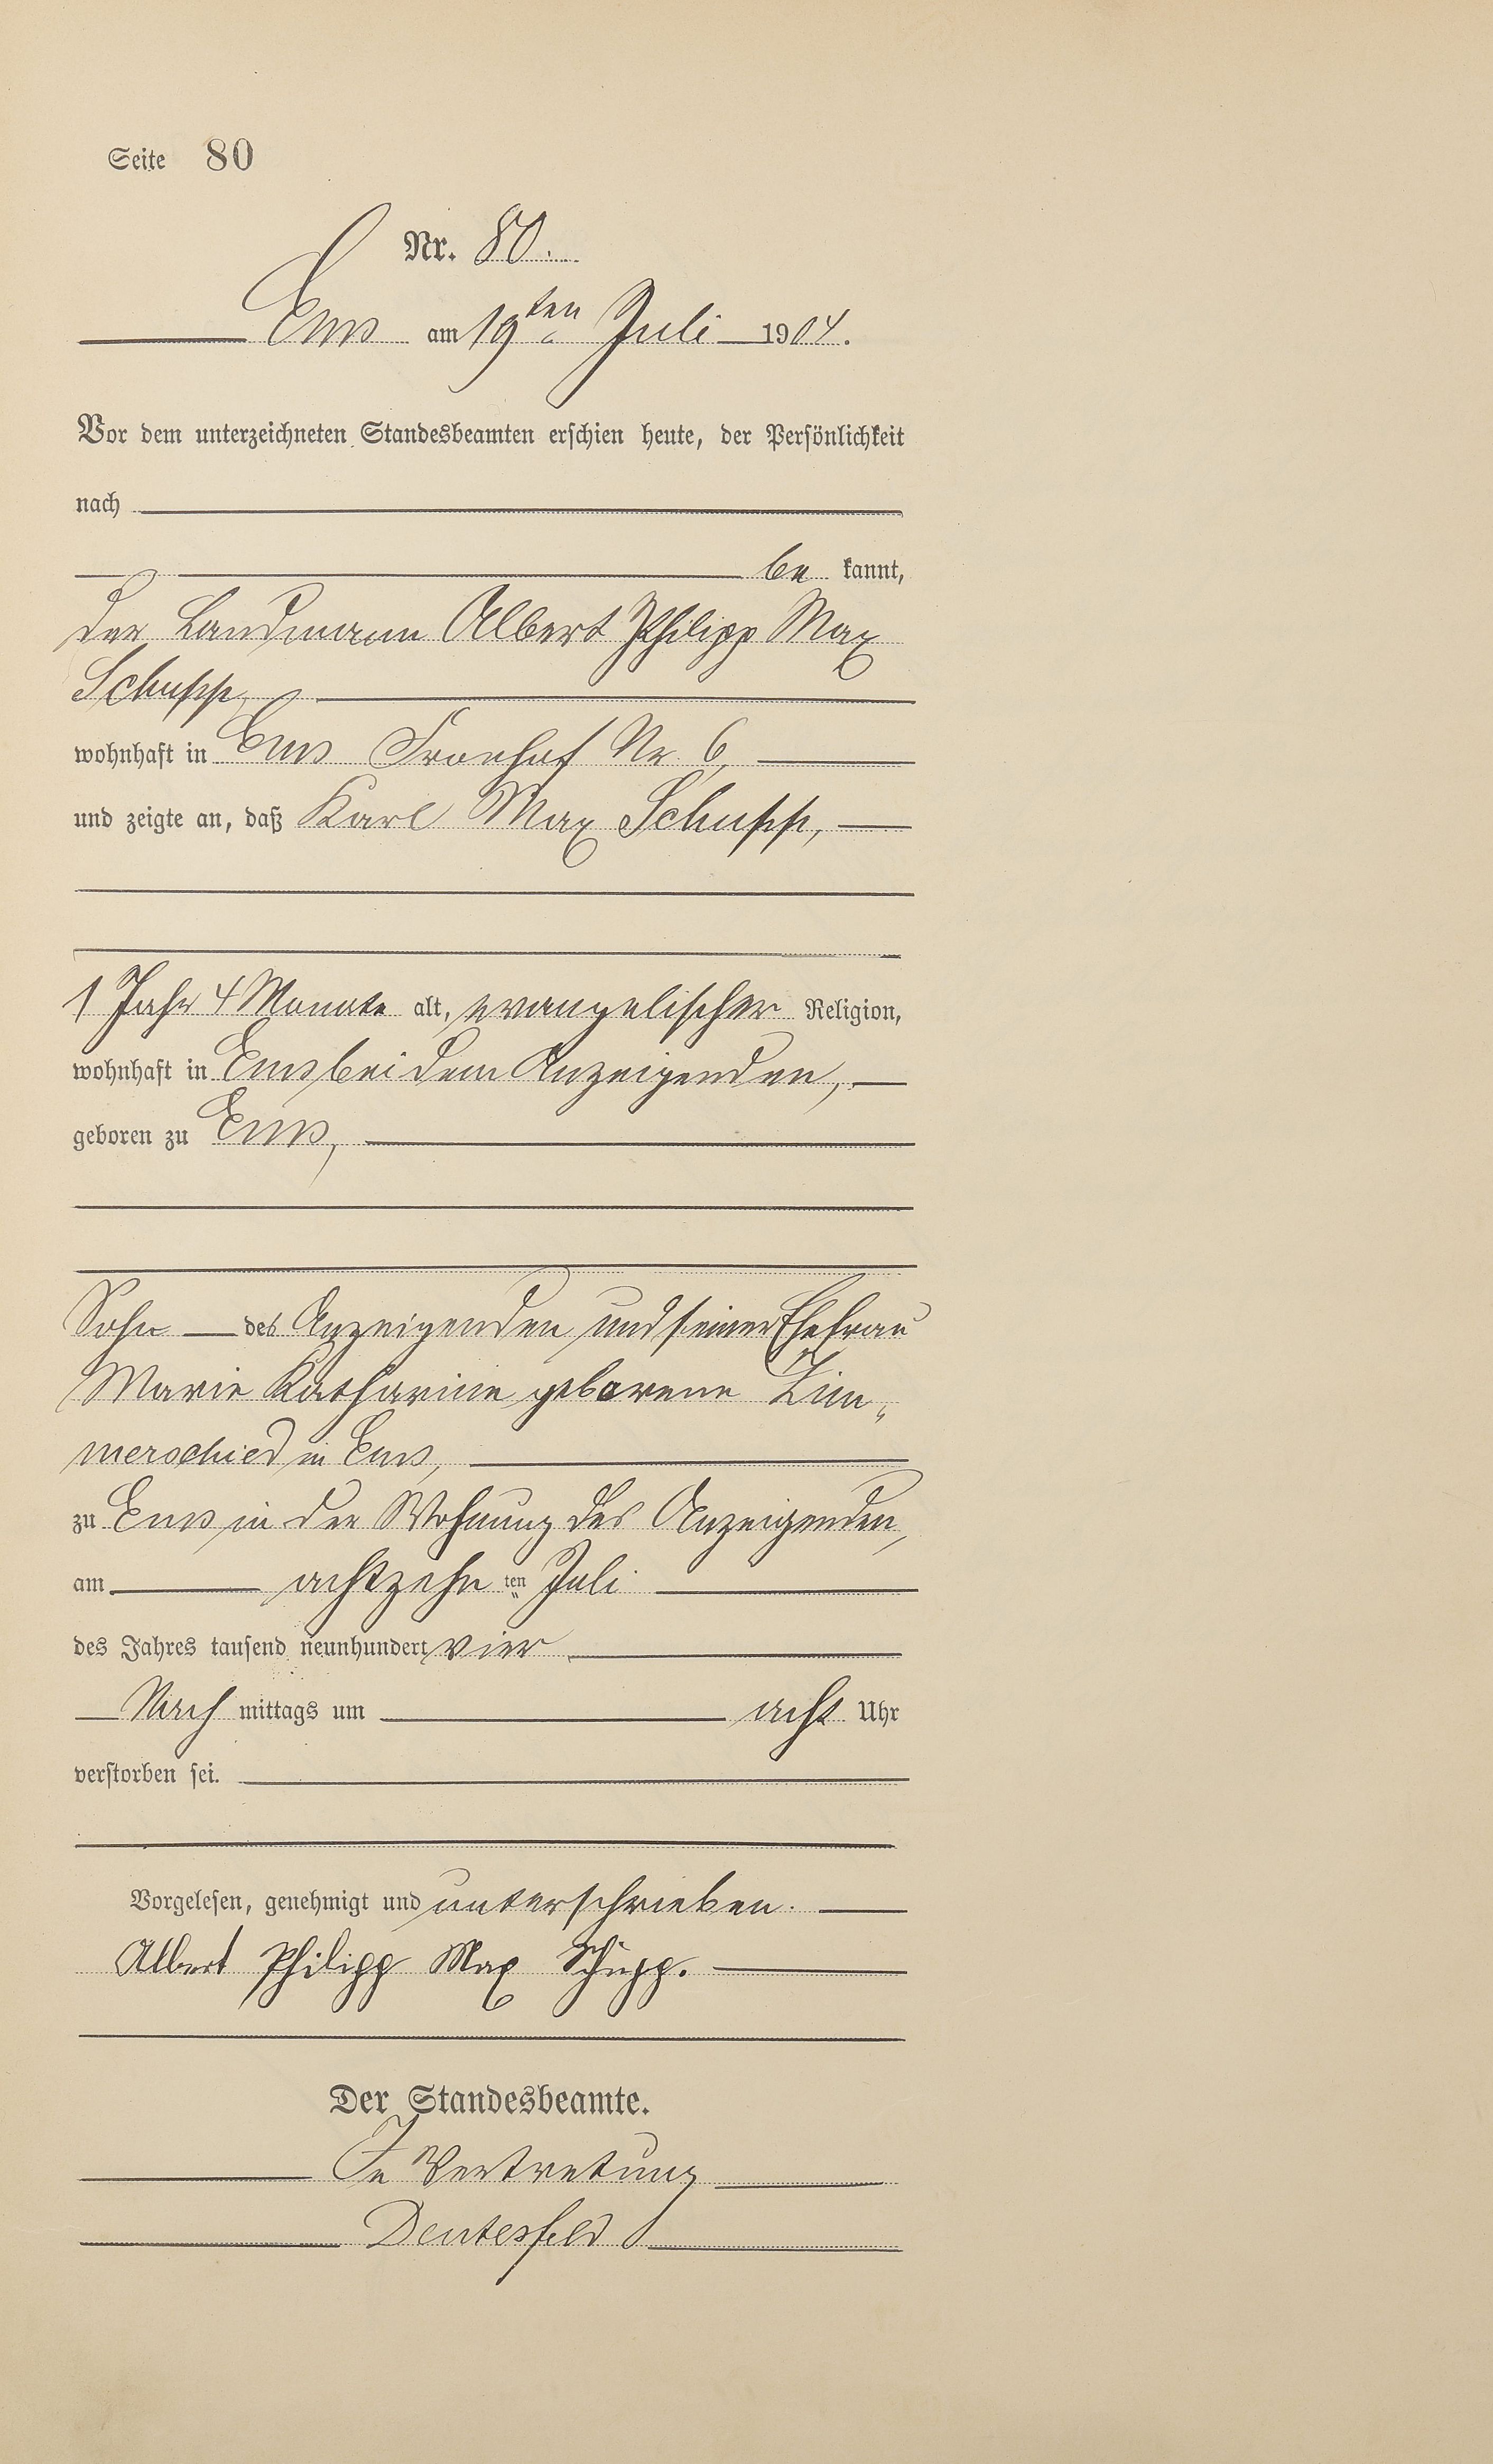 Seite 80
Nr. 80.
Ems am 19ten Juli 1904.
Vor dem unterzeichneten Standesbeamten erschien heute, der Persönlichkeit
nach
be kannt,
der Landmann Albert Philipp Max
Schupp,
wohnhaft in Ems Fronhof Nr. 6,
und zeigte an, daß Karl Max Schupp,
1 Jahr 4 Monate alt, evangelischer Religion,
wohnhaft in Ems bei dem Anzeigenden,
geboren zu Ems,
Sohn des Anzeigenden und seiner Ehefrau
Marie Katharine geborene Lim„
merschied in Ems,
zu Ems in der Wohnung des Anzeigenden,
am achtzehn ten Juli
des Jahres tausend neunhundert vier
Nach mittags um acht Uhr
verstorben sei.
Vorgelesen, genehmigt und unterschrieben.
Albert Philipp Max Schupp.
Der Standesbeamte.
In Vertretung
Deutesfeld